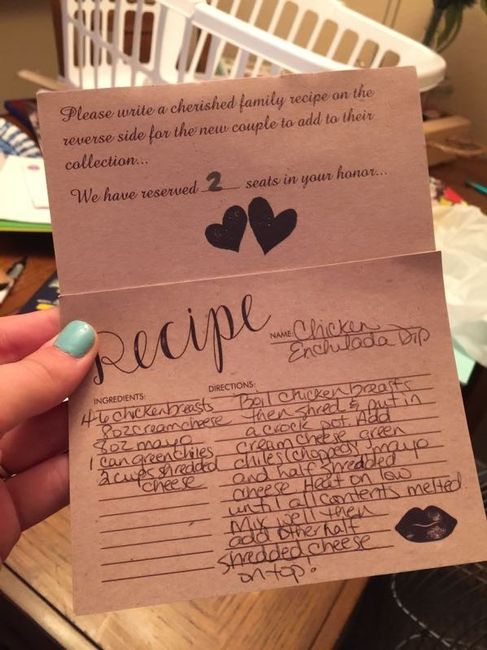 Please write a cherished family recipe on the
reverse side for the new couple to add to their
collection...
We have reserved 2 seats in your honor...
Recipe
NAME: Chicken
Enchulada Dip
INGREDIENTS:
4-6 chicken breasts
8oz cream cheese
8oz mayo
1 can green chiles
2 cups shredded
cheese
DIRECTIONS:
Boil chicken breasts
then shred & put in
a crock pot. Add
cream cheese, green
chiles (chopped), mayo
and half shredded
cheese. Heat on low
until all contents melted.
Mix well then
add other half
shredded cheese
on top!